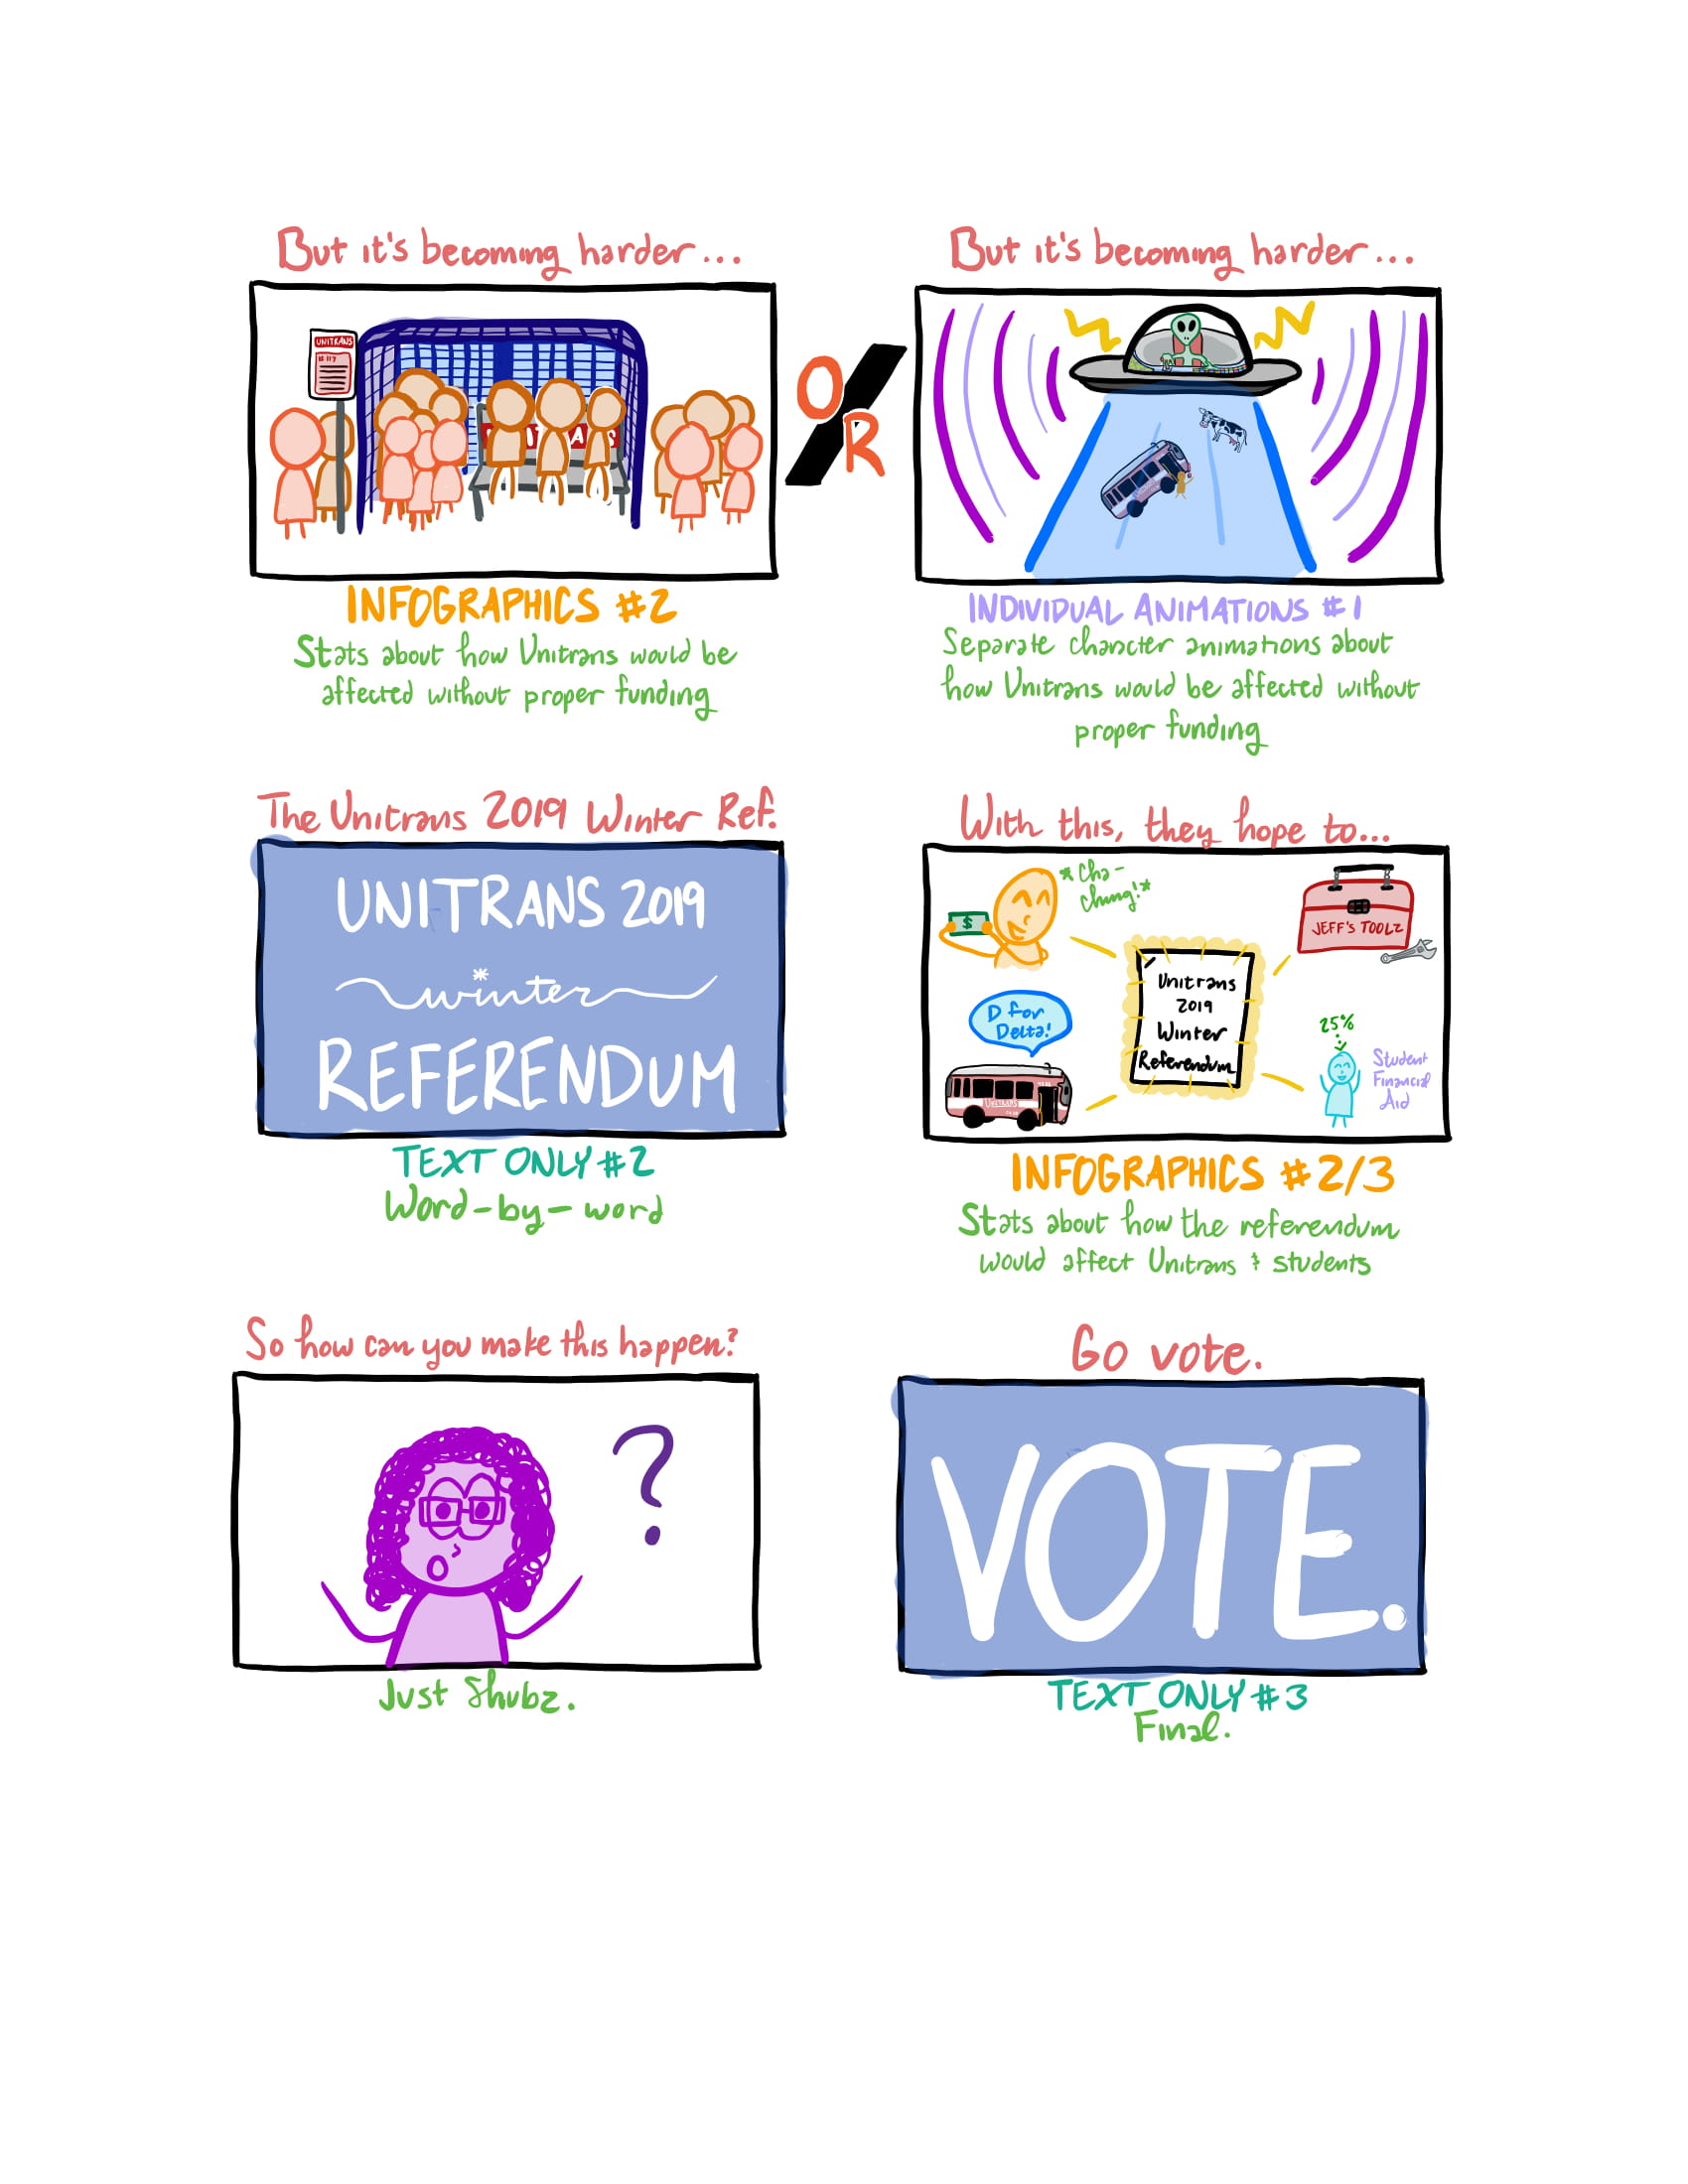 But it's becoming harder...
UNITRANS
OR
INFOGRAPHICS #2
Stats about how Unitrans would be
affected without proper funding
But it's becoming harder...
INDIVIDUAL ANIMATIONS #1
Separate character animations about
how Unitrans would be affected without
proper funding
The Unitrans 2019 Winter Ref.
UNITRANS 2019
winter
REFERENDUM
TEXT ONLY #2
Word-by-word
With this, they hope to...
*Cha-
ching!*
$
JEFF'S TOOLZ
D for
Delta!
UNITRANS
Unitrans
2019
Winter
Referendum
25%
Student
Financial
Aid
INFOGRAPHICS #2/3
Stats about how the referendum
would affect Unitrans & students
So how can you make this happen?
?
Just Shubz.
Go vote.
VOTE.
TEXT ONLY #3
Final.